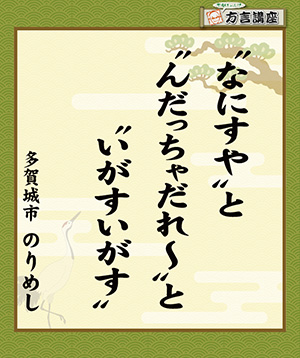 方言講座
〝なにすや〟と
〝んだっちゃだれ〜〟と
〝いがすいがす〟
多賀城市 のりめし